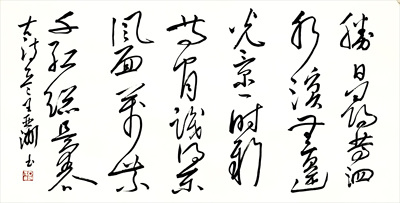 勝日尋芳泗
水濱無邊
光景一時新
等閒識得東
風面萬紫
千紅總是春
古诗 书